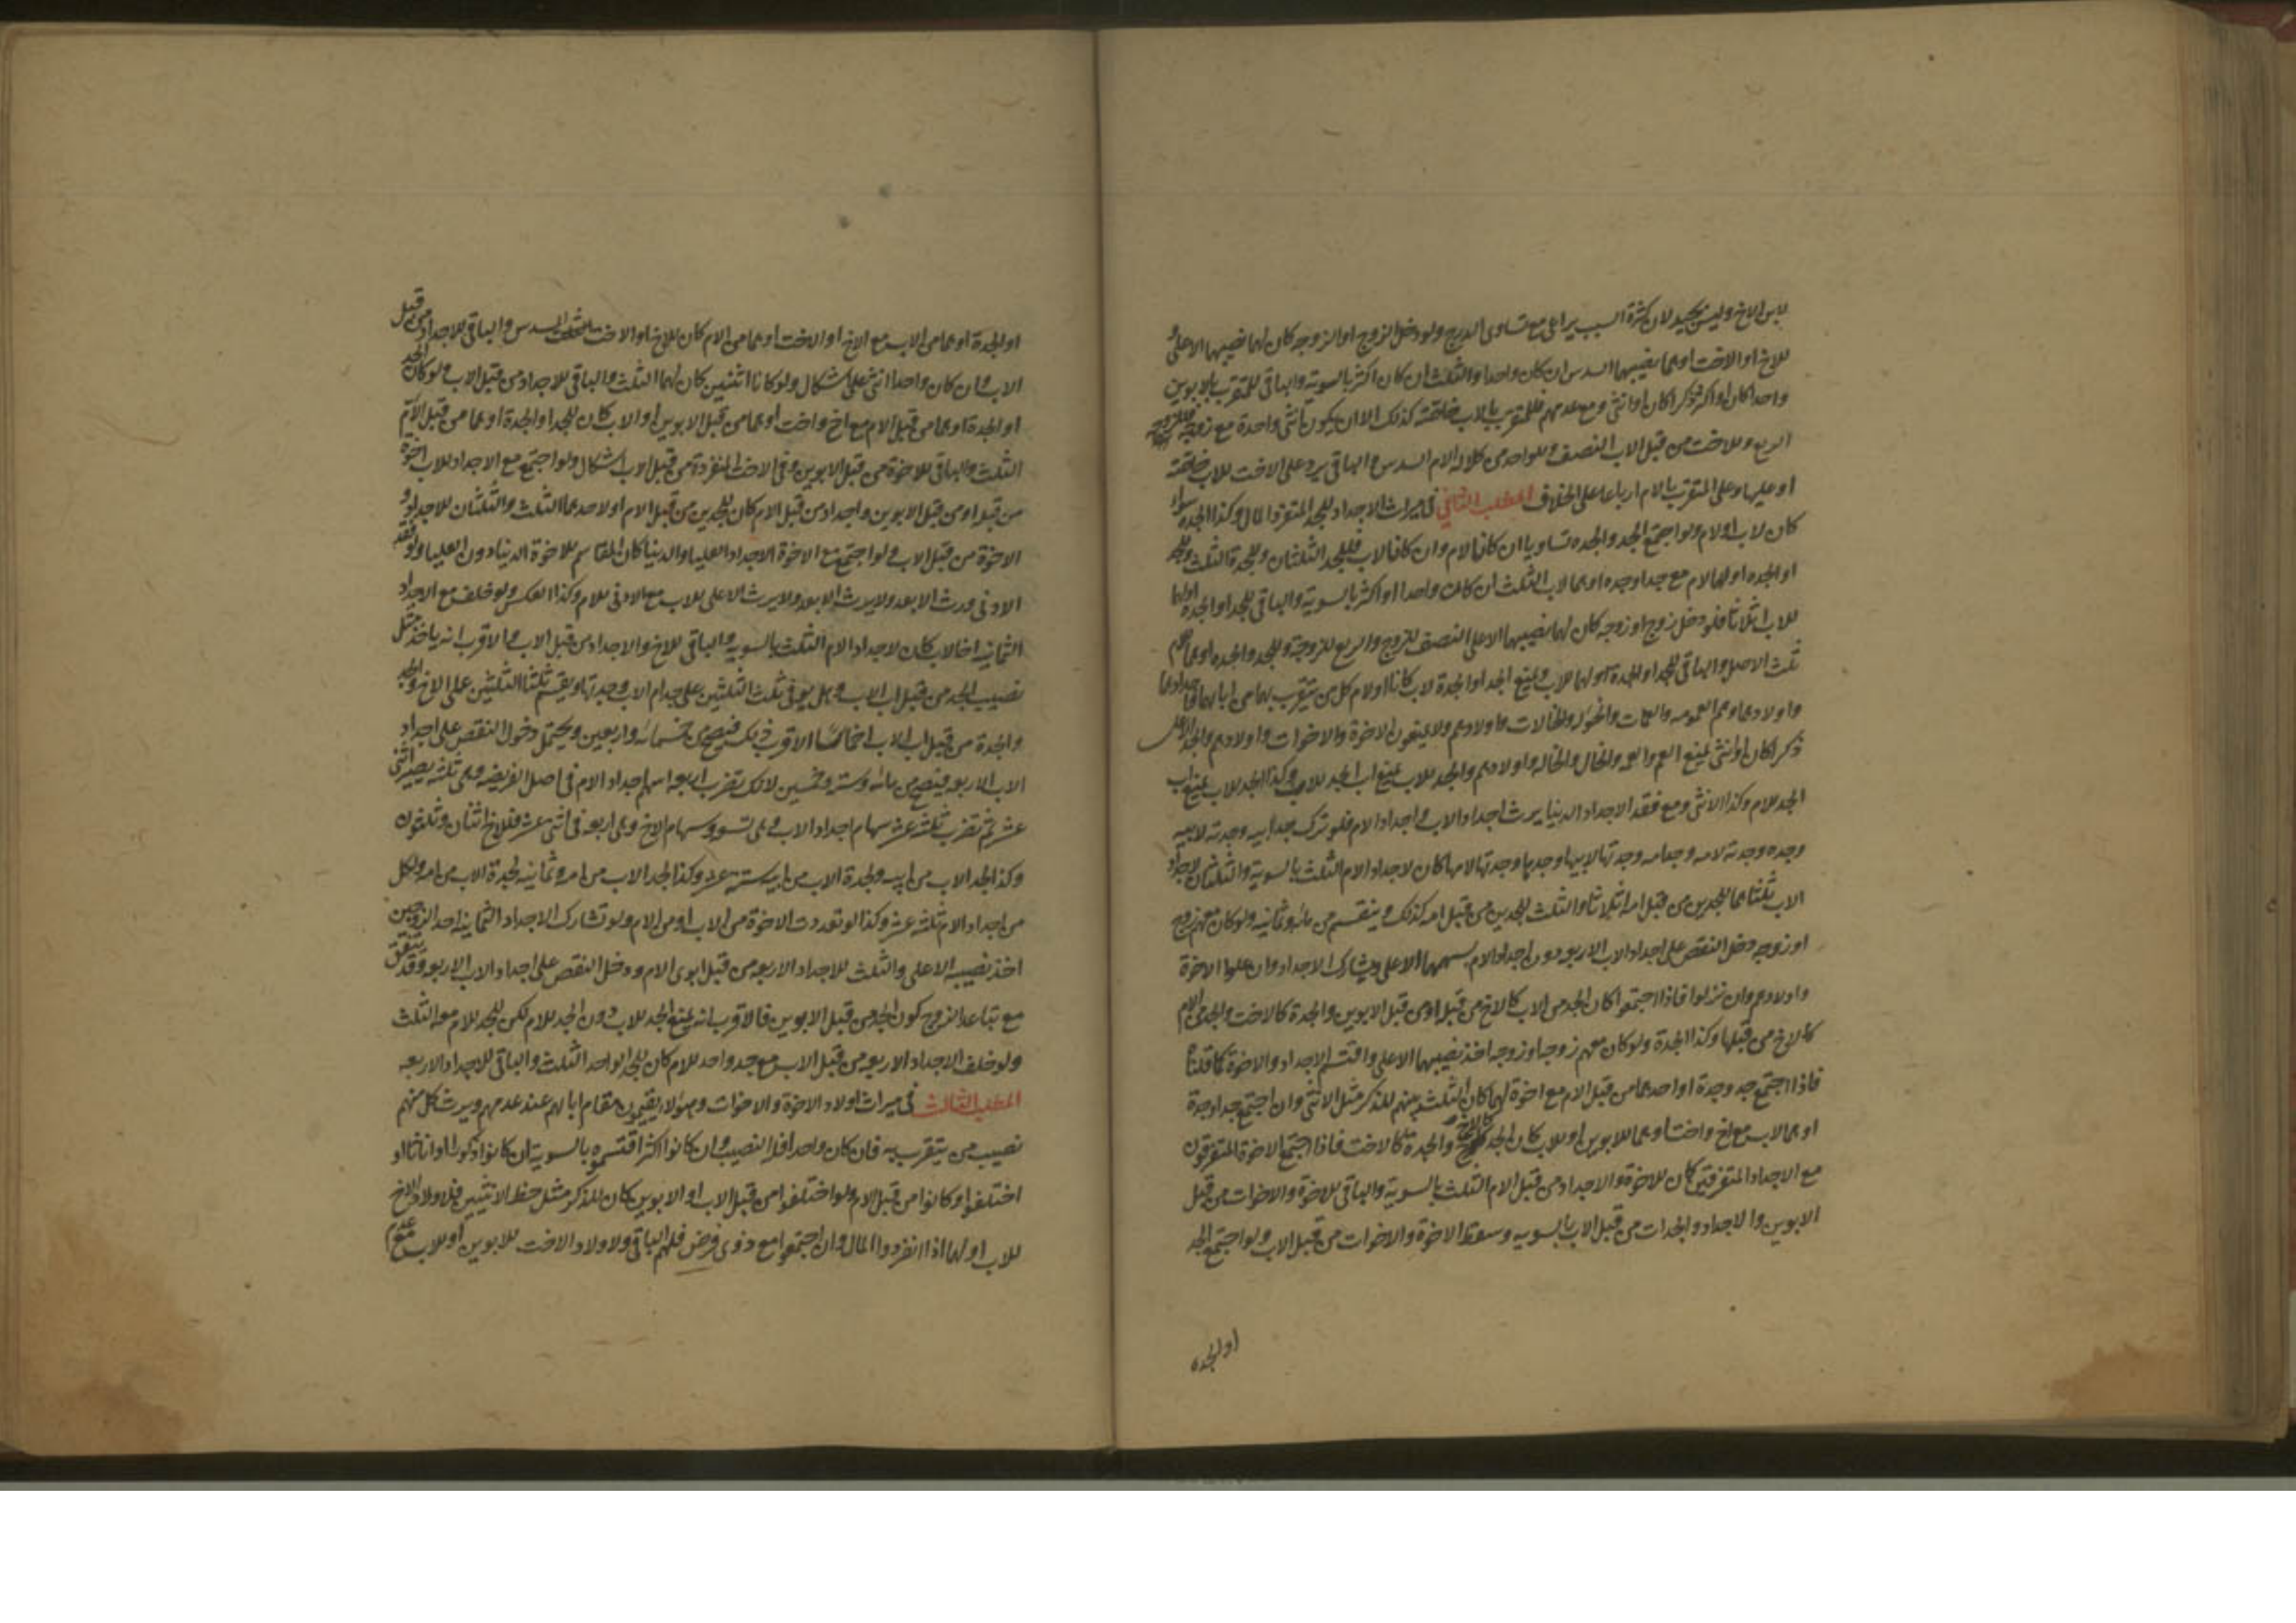 لابن الاخ وليس بجيد لان كثرة السبب يراعى مع تساوى الدرج ولو دخل الزوج او الزوجه كان لهما نصيبهما الاعلى
للاخ او الاخت او هما نصيبهما السدس ان كان واحدا والثلث ان كان اكثر بالسوية والباقى للمتقرب بالابوين
واحدا كان او اكثر ذكرا كان او انثى ومع عدمهم فللمتقرب بالاب خاصّة كذلك الا ان يكون انثى واحدة مع زوجة فللزوجه
الربع وللاخت من قبل الاب النصف وللواحد من كلالة الام السدس والباقى يرد على الاخت للاب خاصّة
او عليها وعلى المتقرب بالام ارباعا على الخلاف المطلب الثانى فى ميراث الاجداد للجد المنفرد المال وكذا الجده سواء
كان لاب او لام ولو اجتمع الجد والجده تساويا ان كانا لام وان كانا لاب فللجد الثلثان وللجدة الثلث وللجد
او الجده او لهما لام مع جد او جده او هما لاب الثلث ان كان واحدا او اكثر بالسوية والباقى للجد او الجده او لهما
للاب اثلاثا فلو دخل زوج او زوجه كان لهما نصيبهما الاعلى النصف للزوج والربع للزوجة وللجد والجده او هما للام
ثلث الاصل والباقى للجد او للجدة او لهما للاب ويمنع الجد او الجدة لاب كانا او لام كل من يتقرب بهما من ابائهما
واولادهما وهم العمومه والعمات والخؤله والخالات واولادهم ولا يمنعون الاخوة والاخوات واولادهم والجد الاعلى
ذكرا كان او انثى يمنع العم والعمه والخال والخاله واولادهم والجد للاب يمنع اب الجد للاب وكذا الجد للاب يمنع اب
الجد للام وكذا الانثى ومع فقد الاجداد الدنيا يرث اجداد الاب واجداد الام فلو ترك جد ابيه وجدته لابيه
وجده وجدته لامه وجد امه وجدتها لابيها وجدها وجدتها لامها كان لاجداد الام الثلث بالسوية والثلثان لاجداد
الاب ثلثاهما للجدين من قبل امه اثلاثا والثلث للجدين من قبل امه كذلك وينقسم من مائة وثمانيه ولو كان معهم زوج
او زوجه دخل النقص على اجداد الاب الاربعه دون اجداد الام بسهمهما الاعلى ويشارك الاجداد وان علوا الاخوة
واولادهم وان نزلوا فاذا اجتمعوا كان الجد من الاب كالاخ من قبله او من قبل الابوين والجدة كالاخت والجد من الام
كالاخ من قبلها وكذا الجدة ولو كان معهم زوج او زوجه اخذ نصيبهما الاعلى واقتسم الاجداد والاخوة كما قلناه
فاذا اجتمع جد وجدة او احدهما من قبل الام مع اخوة لها كان الثلث بينهم للذكر مثل الانثى وان اجتمع جد او جدة
او هما لاب مع اخ واخت او هما للابوين او للاب كان الجد كالاخ والجدة كالاخت فاذا اجتمع الاخوة المتفرقون
مع الاجداد المتفرقين كان للاخوة والاجداد من قبل الام الثلث بالسوية والباقى للاخوة والاخوات من قبل
الابوين والاجداد والجدات من قبل الاب بالسويه وسقط الاخوة والاخوات من قبل الاب ولو اجتمع الجد
او الجده
او الجدة او هما من الاب مع الاخ او الاخت او هما من الام كان للاخ او الاخت السدس والباقى للاجداد من قبل
الاب وان كان واحدا انثى على اشكال ولو كانا اثنين كان لهما الثلث والباقى للاجداد من قبل الاب ولو كان الجد
او الجدة او هما من قبل الام مع اخ واخت او هما من قبل الابوين او الاب كان للجد او الجدة او هما من قبل الام
الثلث والباقى للاخوة من قبل الابوين وفى الاخت المنفردة من قبل الاب اشكال ولو اجتمع مع الاجداد للاب اخوة
من قبله او من قبل الابوين واجداد من قبل الام كان للجدين من قبل الام او لاحدهما الثلث والثلثان للاجداد و
الاخوة من قبل الاب ولو اجتمع مع الاخوة الاجداد العليا والدنيا كان المقاسم للاخوة الدنيا دون العليا ولو فقد
الادنى ورث الابعد ولا يرث الابعد ولا يرث الاعلى للاب مع الادنى للام وكذا العكس ولو خلف مع الاجداد
الثمانيه اخا لاب كان لاجداد الام الثلث بالسويه والباقى للاخ والاجداد من قبل الاب والاقرب انه ياخذ مثل
نصيب الجد من قبل اب الاب وهل يوفى ثلث الثلثين على جد ام الاب وجدتها ويقسم ثلثا الثلثين على الاخ والجد
والجدة من قبل اب الاب اخماسًا الاقرب ذلك فتصح من خمسمائه واربعين ويحتمل دخول النقص على اجداد
الاب الاربعه فيصح من مائه وسته وخمسين لانك تضرب اربعه اسهم اجداد الام فى اصل الفريضه وهى ثلثه يصير اثنى
عشر ثم تضرب ثلثه عشر سهام اجداد الاب وهى تسعه وسهام الاخ وهى اربعه فى اثنى عشر فللاخ اثنان وثلثون
وكذا الجد الاب من ابيه ولجدة الاب من ابيه سته عشر وكذا لجد الاب من امه وثمانيه لجدة الاب من امه ولكل
من اجداد الام ثلثه عشر وكذا لو تعددت الاخوة من الاب او من الام ولو شارك الاجداد الثمانيه احد الزوجين
اخذ نصيبه الاعلى والثلث للاجداد الاربعه من قبل ابوى الام ودخل النقص على اجداد الاب الاربعه وقد يتفق
مع تباعد الزوج كون الجد من قبل الابوين فالاقرب انه يمنع الجد للاب دون الجد للام لكن للجد للام معه الثلث
ولو خلف الاجداد الاربعه من قبل الاب مع جد واحد للام كان للجد الواحد الثلث والباقى للاجداد الاربعه
المطلب الثالث فى ميراث اولاد الاخوة والاخوات وهؤلاء يقيمون مقام ابائهم عند عدمهم ويرث كل منهم
نصيب من يتقرب به فان كان واحدا فله النصيب وان كانوا اكثر اقتسموه بالسوية ان كانوا ذكورا او اناثا او
اختلفوا وكانوا من قبل الام ولو اختلفوا من قبل الاب او الابوين كان للذكر مثل حظ الانثيين فلاولاد الاخ
للاب او لهما اذا انفردوا المال وان اجتمعوا مع ذوى فرض فلهم الباقى ولاولاد الاخت للابوين او للاب مع عدمهم